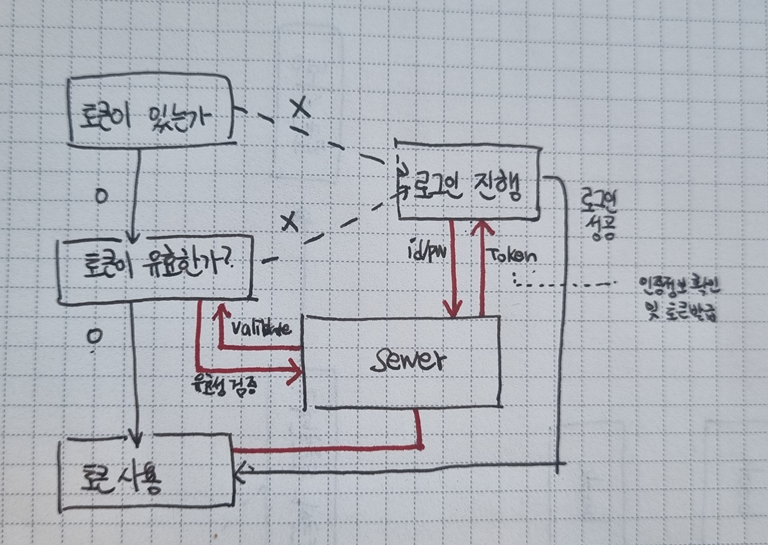 토큰이 있는가
X
로그인 진행
O
로그인
성공
X
토큰이 유효한가?
id/pw
Token
인증정보 확인
및 토큰발급
validate
O
Server
유효성 검증
토큰 사용